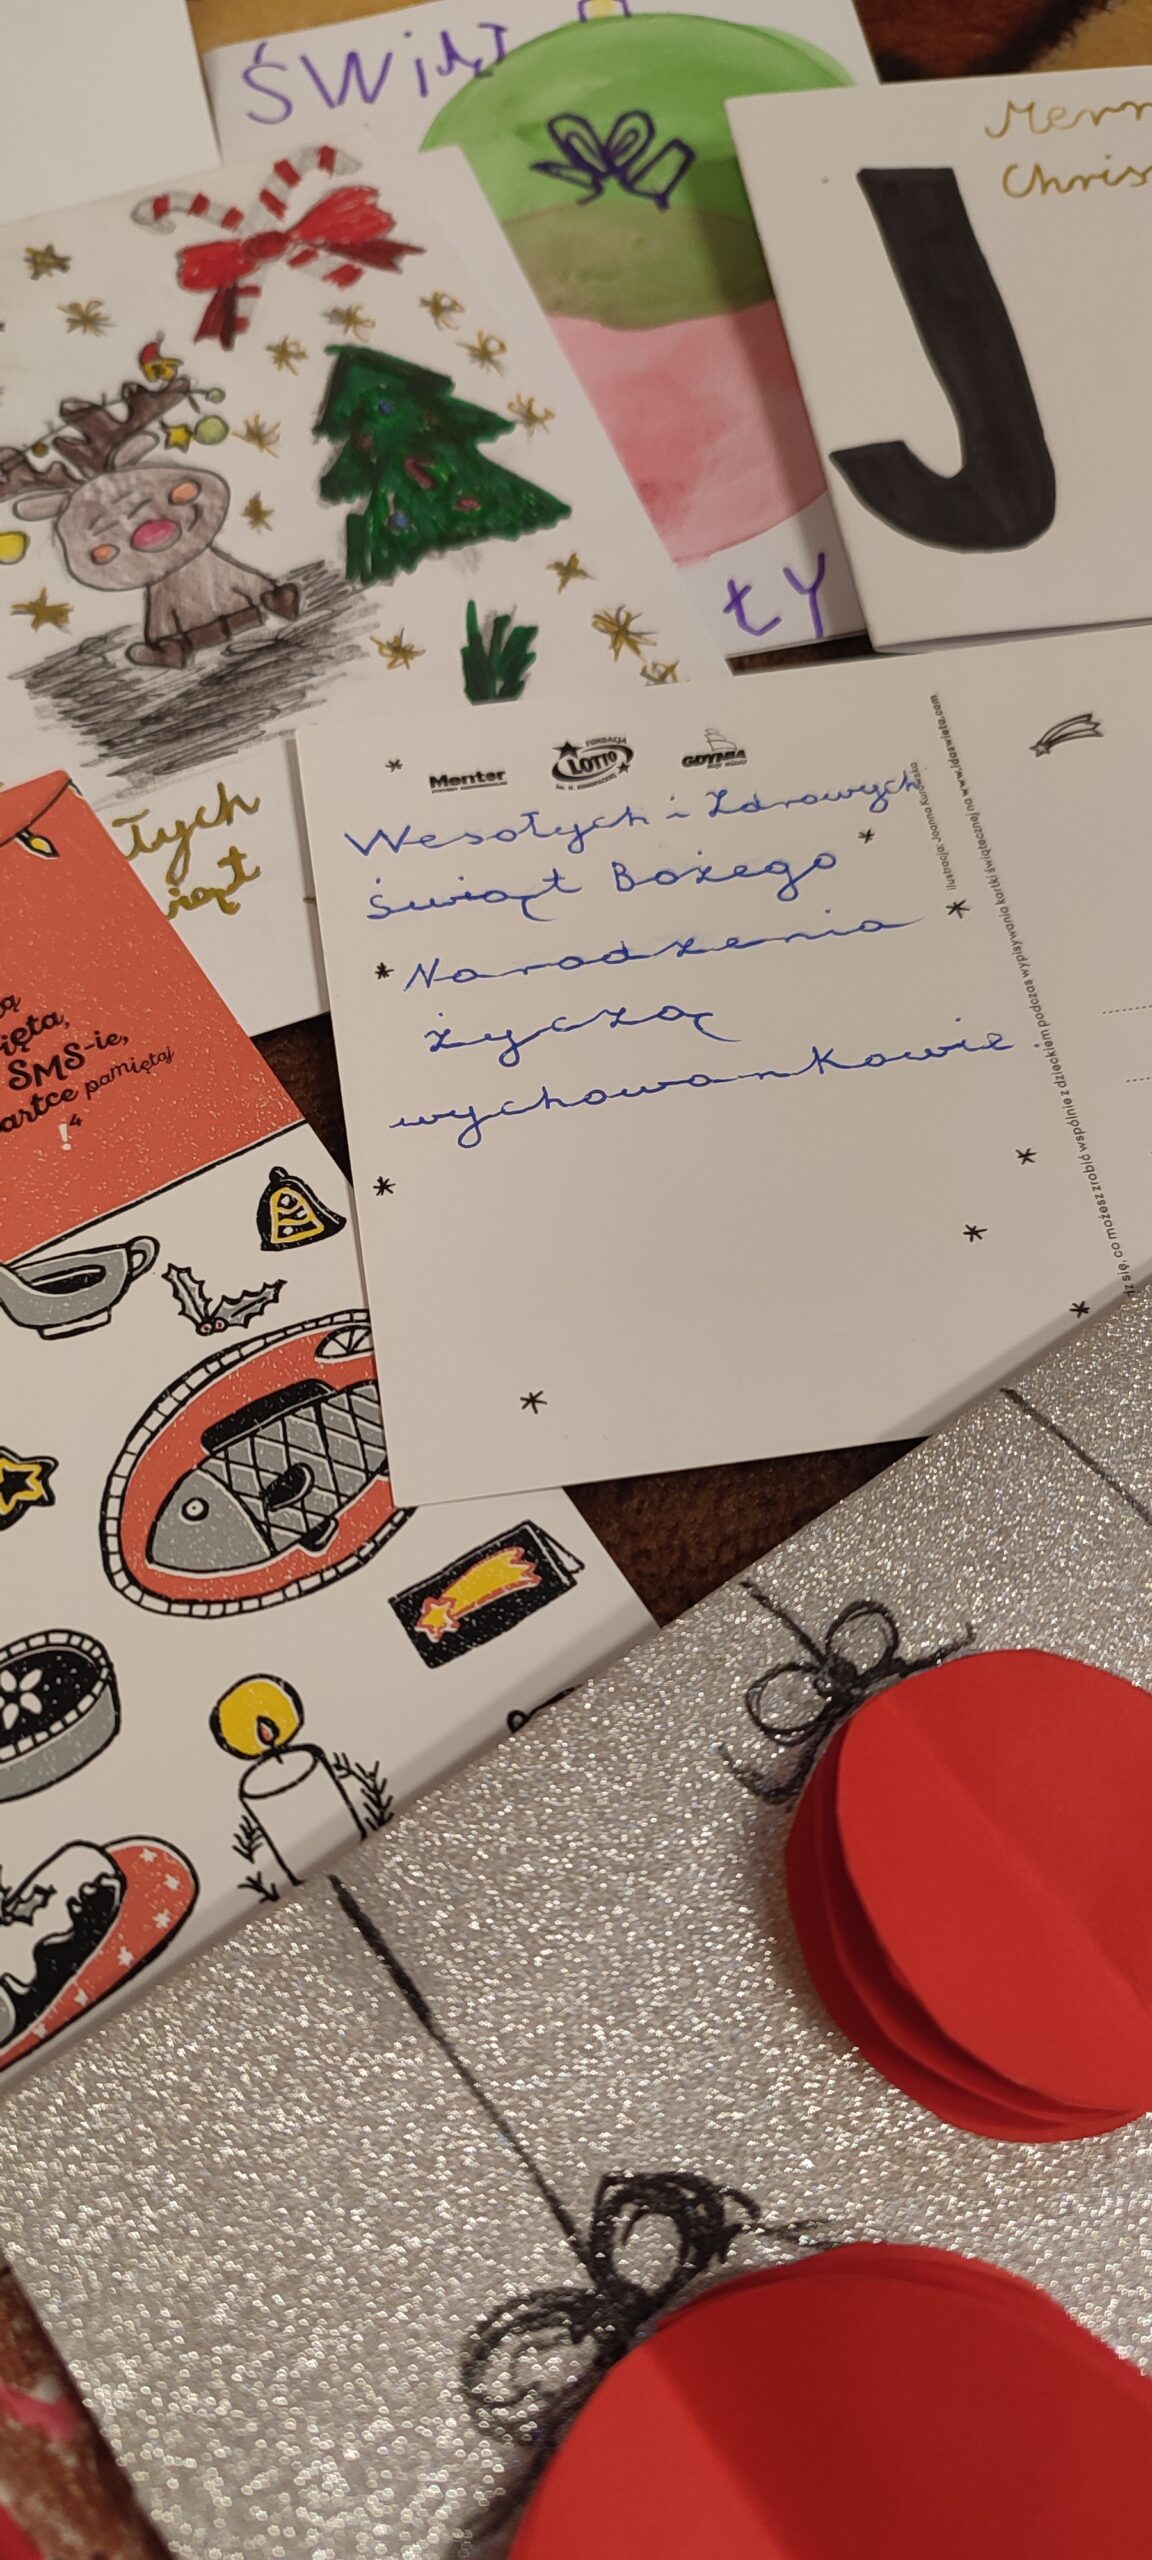 ŚWiĄT
Merr
Chris
ty
łych
iąt
Mentor
FUNDACJA
LOTTO
GDYNIA
Wesołych i Zdrowych
Świąt Bożego
Narodzenia
życzą
wychowankowie
ilustracja: Joanna Kurowska
dz się, co możesz zrobić wspólnie z dzieckiem podczas wypisywania kartki świątecznej na www.idaswieta.com
ą
ięta,
SMS-ie,
artce pamiętaj
!